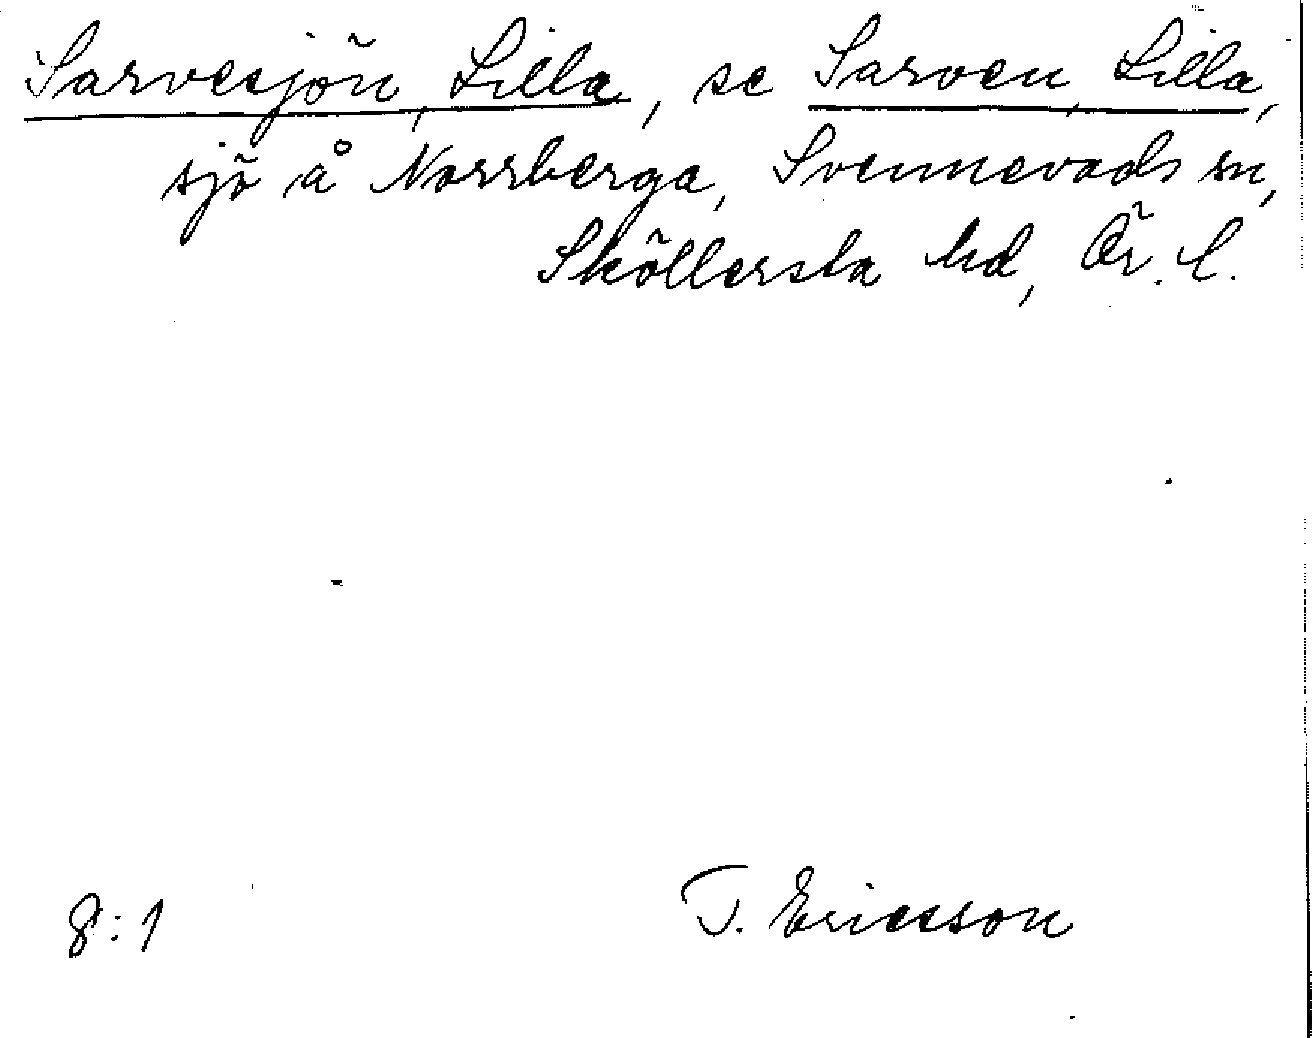 Sarvesjön, Lilla, se Sarven, Lilla,
sjö å Norrberga, Svennevads sn,
Sköllersta hd, Ör. l.
8:1
T. Ericsson